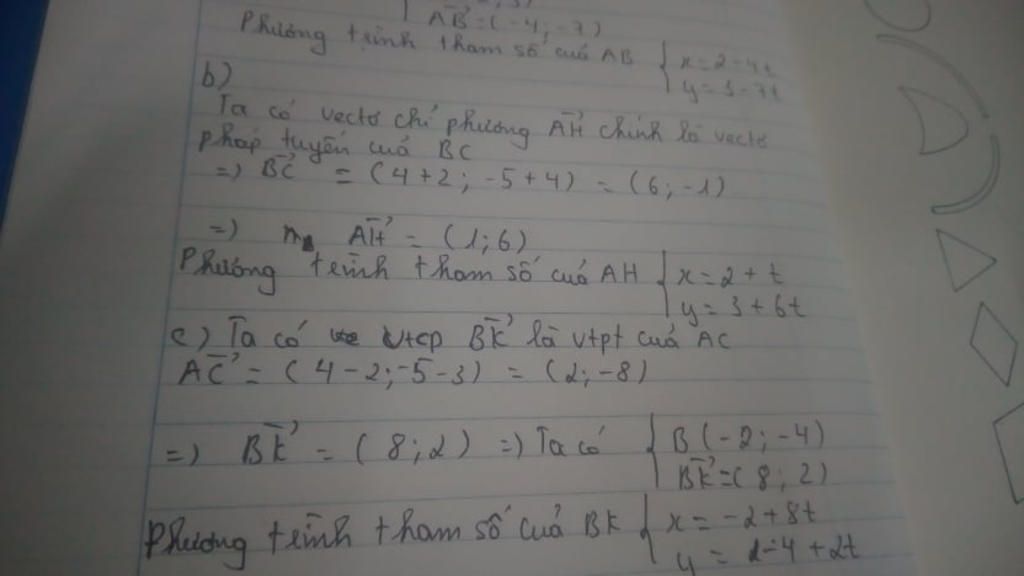 AB→ = (-4; -7)
Phương trình tham số cuả AB { x = 2 - 4t
y = 3 - 7t
b)
Ta có vectơ chỉ phương AH→ chính là vectơ
pháp tuyến cuả BC
=) BC→ = (4+2; -5+4) = (6; -1)
=) AH→ = (1; 6)
Phương trình tham số cuả AH { x = 2 + t
y = 3 + 6t
c) Ta có vtcp BK→ là vtpt cuả AC
AC→ = (4-2; -5-3) = (2; -8)
=) BK→ = (8; 2) =) Ta có { B(-2; -4)
BK→ = (8; 2)
Phương trình tham số cuả BK { x = -2 + 8t
y = -4 + 2t